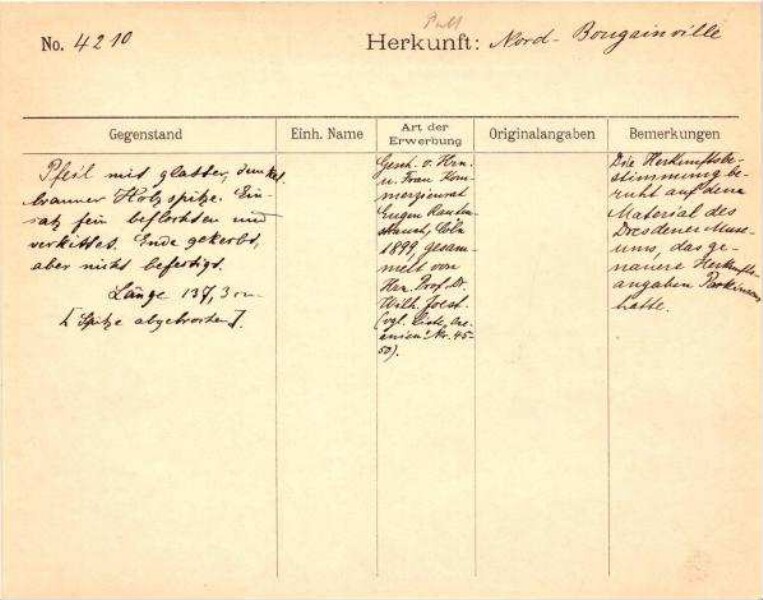 No. 4210
Herkunft: Nord-Bougainville
Gegenstand
Einh. Name
Art der Erwerbung
Originalangaben
Bemerkungen
Pfeil mit glatter, dunkel
brauner Holzspitze. Ein-
satz fein beflochten und
verkittet. Ende gekerbt,
aber nicht befestigt.
Länge 137,3 cm.
[Spitze abgebrochen].
Gesch. v. Hrn.
u. Frau Kom-
merzienrat
Eugen Rauten-
strauch, Cöln
1899, gesam-
melt von
Hrn. Prof. Dr.
Wilh. Joest.
(vgl. Liste „Oze-
anien“ Nr. 45-
50).
Die Herkunftsbe-
stimmung be-
ruht auf dem
Material des
Dresdener Muse-
ums, das ge-
nauere Herkunfts-
angaben Parkinsons
hatte.